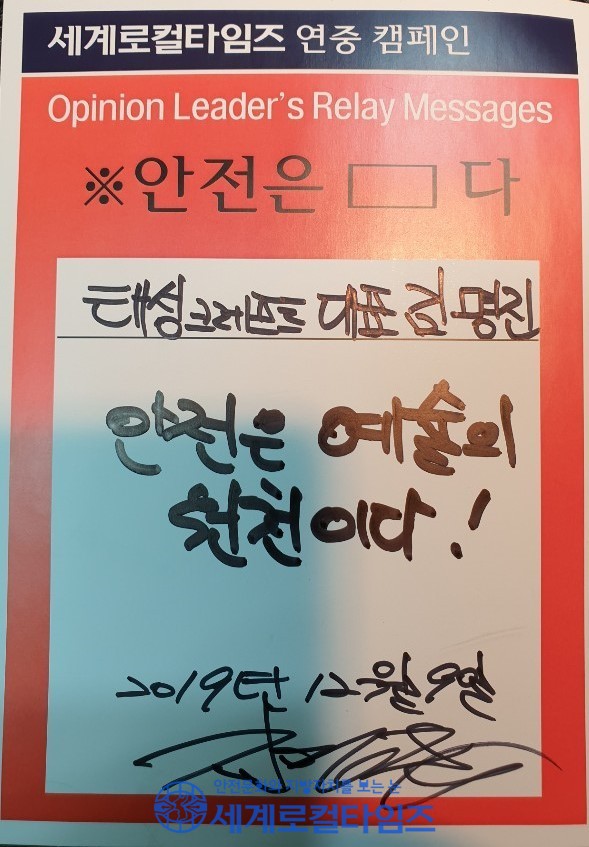 세계로컬타임즈 연중 캠페인
Opinion Leader's Relay Messages
※안전은 □ 다
대표 김명진
안전은 예술의
원천이다!
2019년 12월 9일
안전문화와 지방자치를 보는 눈
세계로컬타임즈